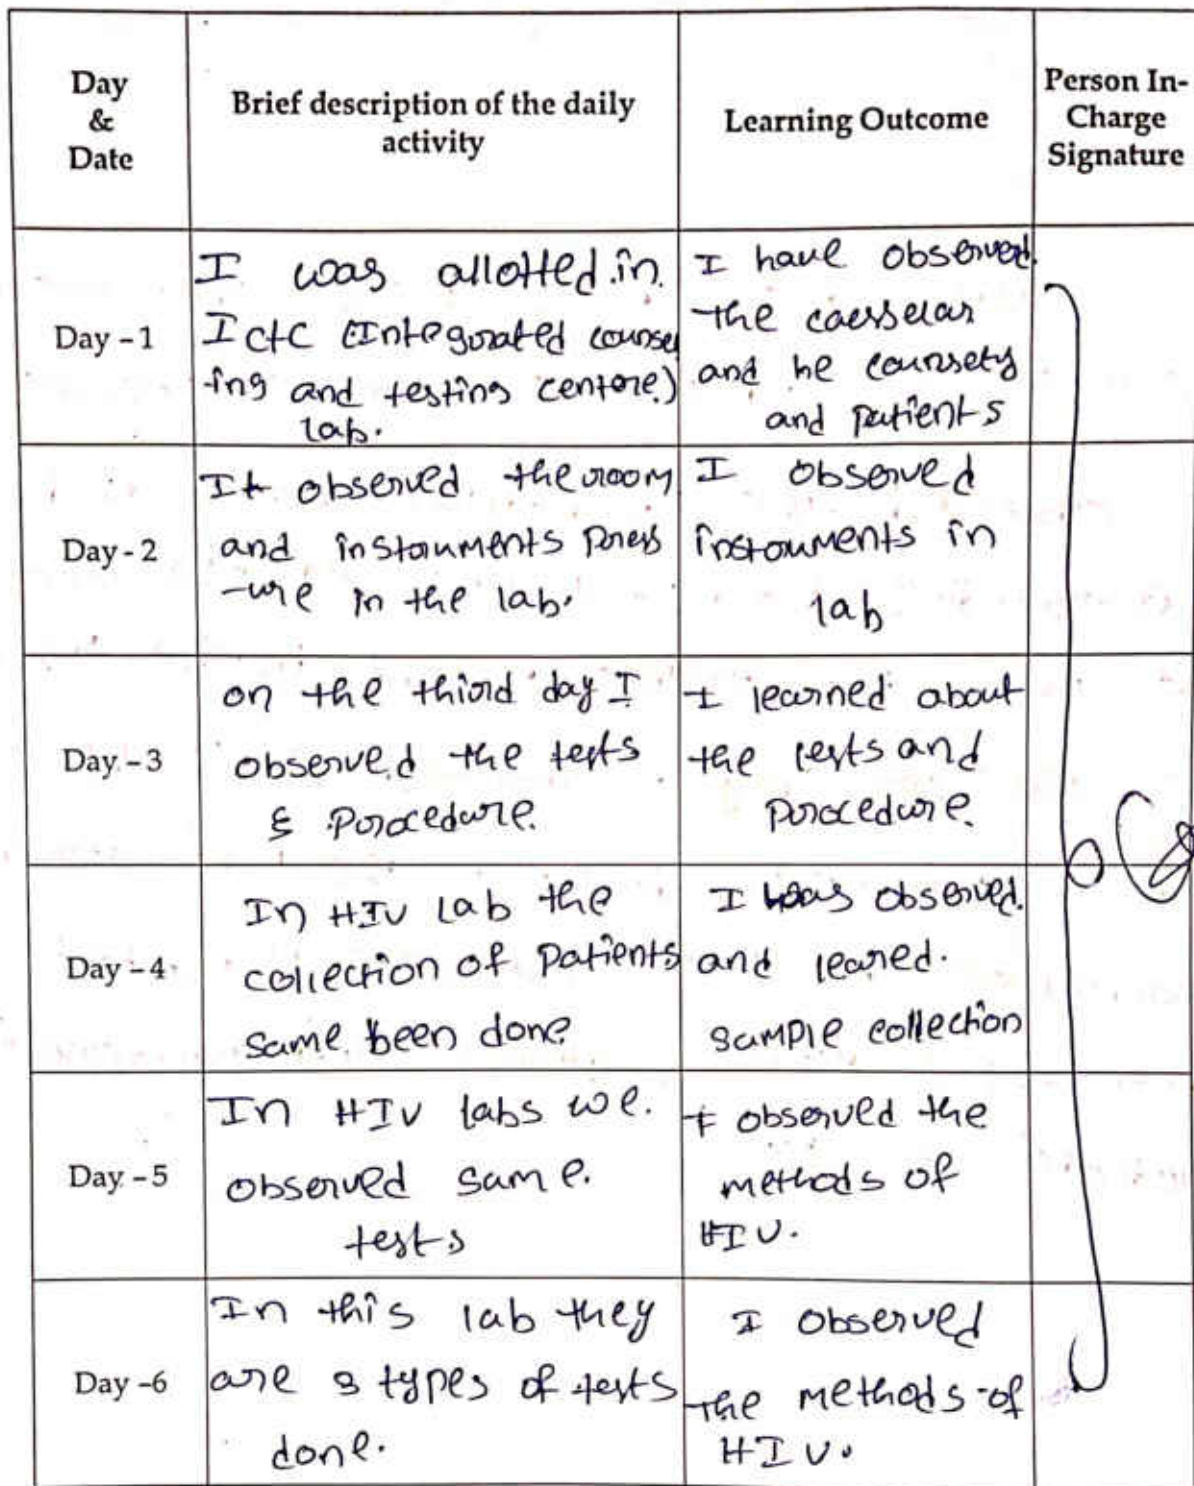 Day
&
Date
Brief description of the daily
activity
Learning Outcome
Person In-
Charge
Signature
Day - 1
I was allotted in
ICTC (Integrated counse
-ing and testing centre)
lab.
I have observed
the
and he
and patients
Day - 2
It observed the room
and instruments press
-ure in the lab.
I observed
instruments in
lab
Day - 3
on the third day I
observed the tests
& Procedure.
I learned about
the tests and
procedure.
Day - 4
In HIV Lab the
collection of Patients
same been done
I was observed
and leared.
sample collection
Day - 5
In HIV labs we.
observed same.
tests
I observed the
methods of
HIV.
Day -6
In this lab they
are 3 types of tests
done.
I observed
the methods of
HIV.